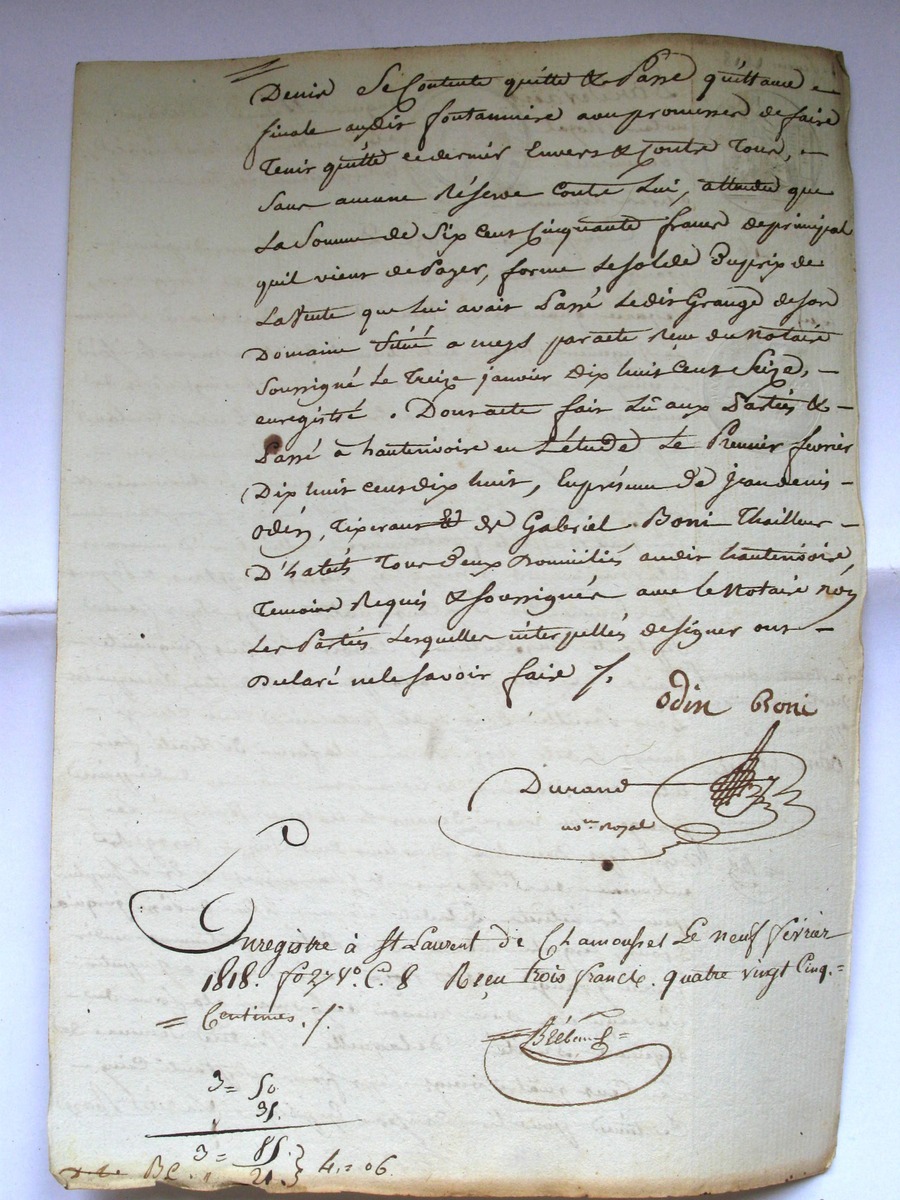 Denis Se Contente quitte & Passe quittance
finale audit fontanniere avec promesse de faire
Tenir quitte ce dernier Envers & Contre Tous, -
Sans aucune Réserve contre Lui, attendu que
La Somme de Six Cent Cinquante francs de principal
quil vient de Payer, forme le solde du prix de
La Vente que Lui avait Passé Ledit Grange de son
Domaine Situé a meys par acte Reçu du Notaire
Soussigné Le Treize janvier dix huit cent Seize, -
enregistré. Dont acte fait Lû aux Parties & -
Passé à hauterivoire en L'étude Le Premier fevrier
Dix huit cent dix huit, En présence de Jean denis -
Odin, Tixerant & de Gabriel Boni Thailleur -
D'habits Tous deux Domiciliés audit hauterivoire
Temoins Requis & soussignés avec le Notaire non
Les Parties Lesquelles interpellés de signer ont -
Declaré ne le savoir faire /.
Odin Boni
Durand
no.re Royal
Enregistré à St Laurent de Chamousset Le neuf février
1818. fo 27 Vo. C. 8 Reçu trois francs quatre vingt Cinq =
= Centimes. /.
3 = 50
35.
3 = 85
21. } 4 = 06.